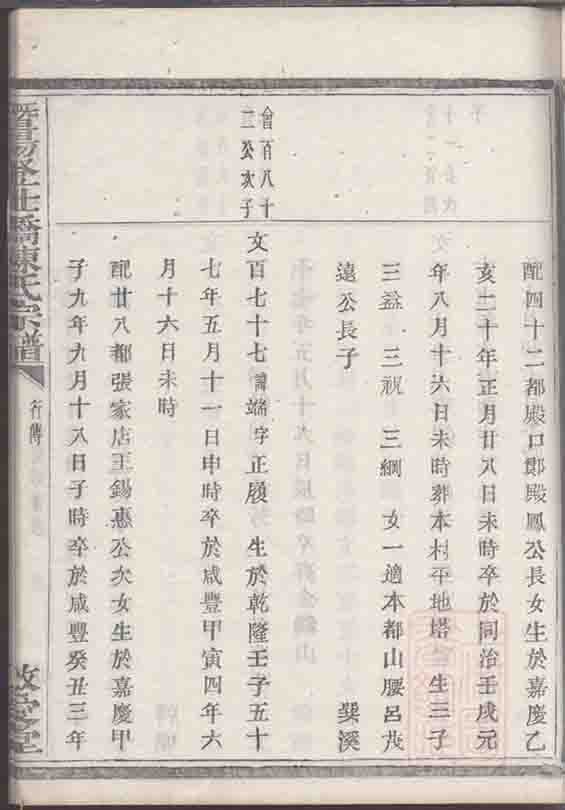 配四十二都殿口鄭殿鳳公長女生於嘉慶乙
亥二十年正月廿八日未時卒於同治壬戌元
年八月十六日未時葬本村平地塔 生三子
三益 三祝 三綱 女一適本都山腰呂茂
遠公長子
巽溪
會百八十
二公次子
文百七十七諱端字正履 生於乾隆壬子五十
七年五月十一日申時卒於咸豐甲寅四年六
月十六日未時
配廿八都張家店王錫惠公次女生於嘉慶甲
子九年九月十八日子時卒於咸豐癸丑三年
暨陽登仕橋陳氏宗譜
行傳
敬愛堂